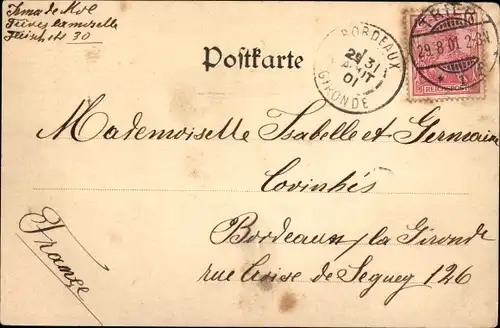 Irma de Kol
Trèves la moselle
Fleischstr 30
Postkarte
BORDEAUX
2E 31
AOUT
01
GIRONDE
TRIER
29.8.01. 2-3N
REICHSPOST
Mademoiselle Isabelle et Germaine
Covinhés
Bordeaux s/la Gironde
rue Croix de Seguey 126
France